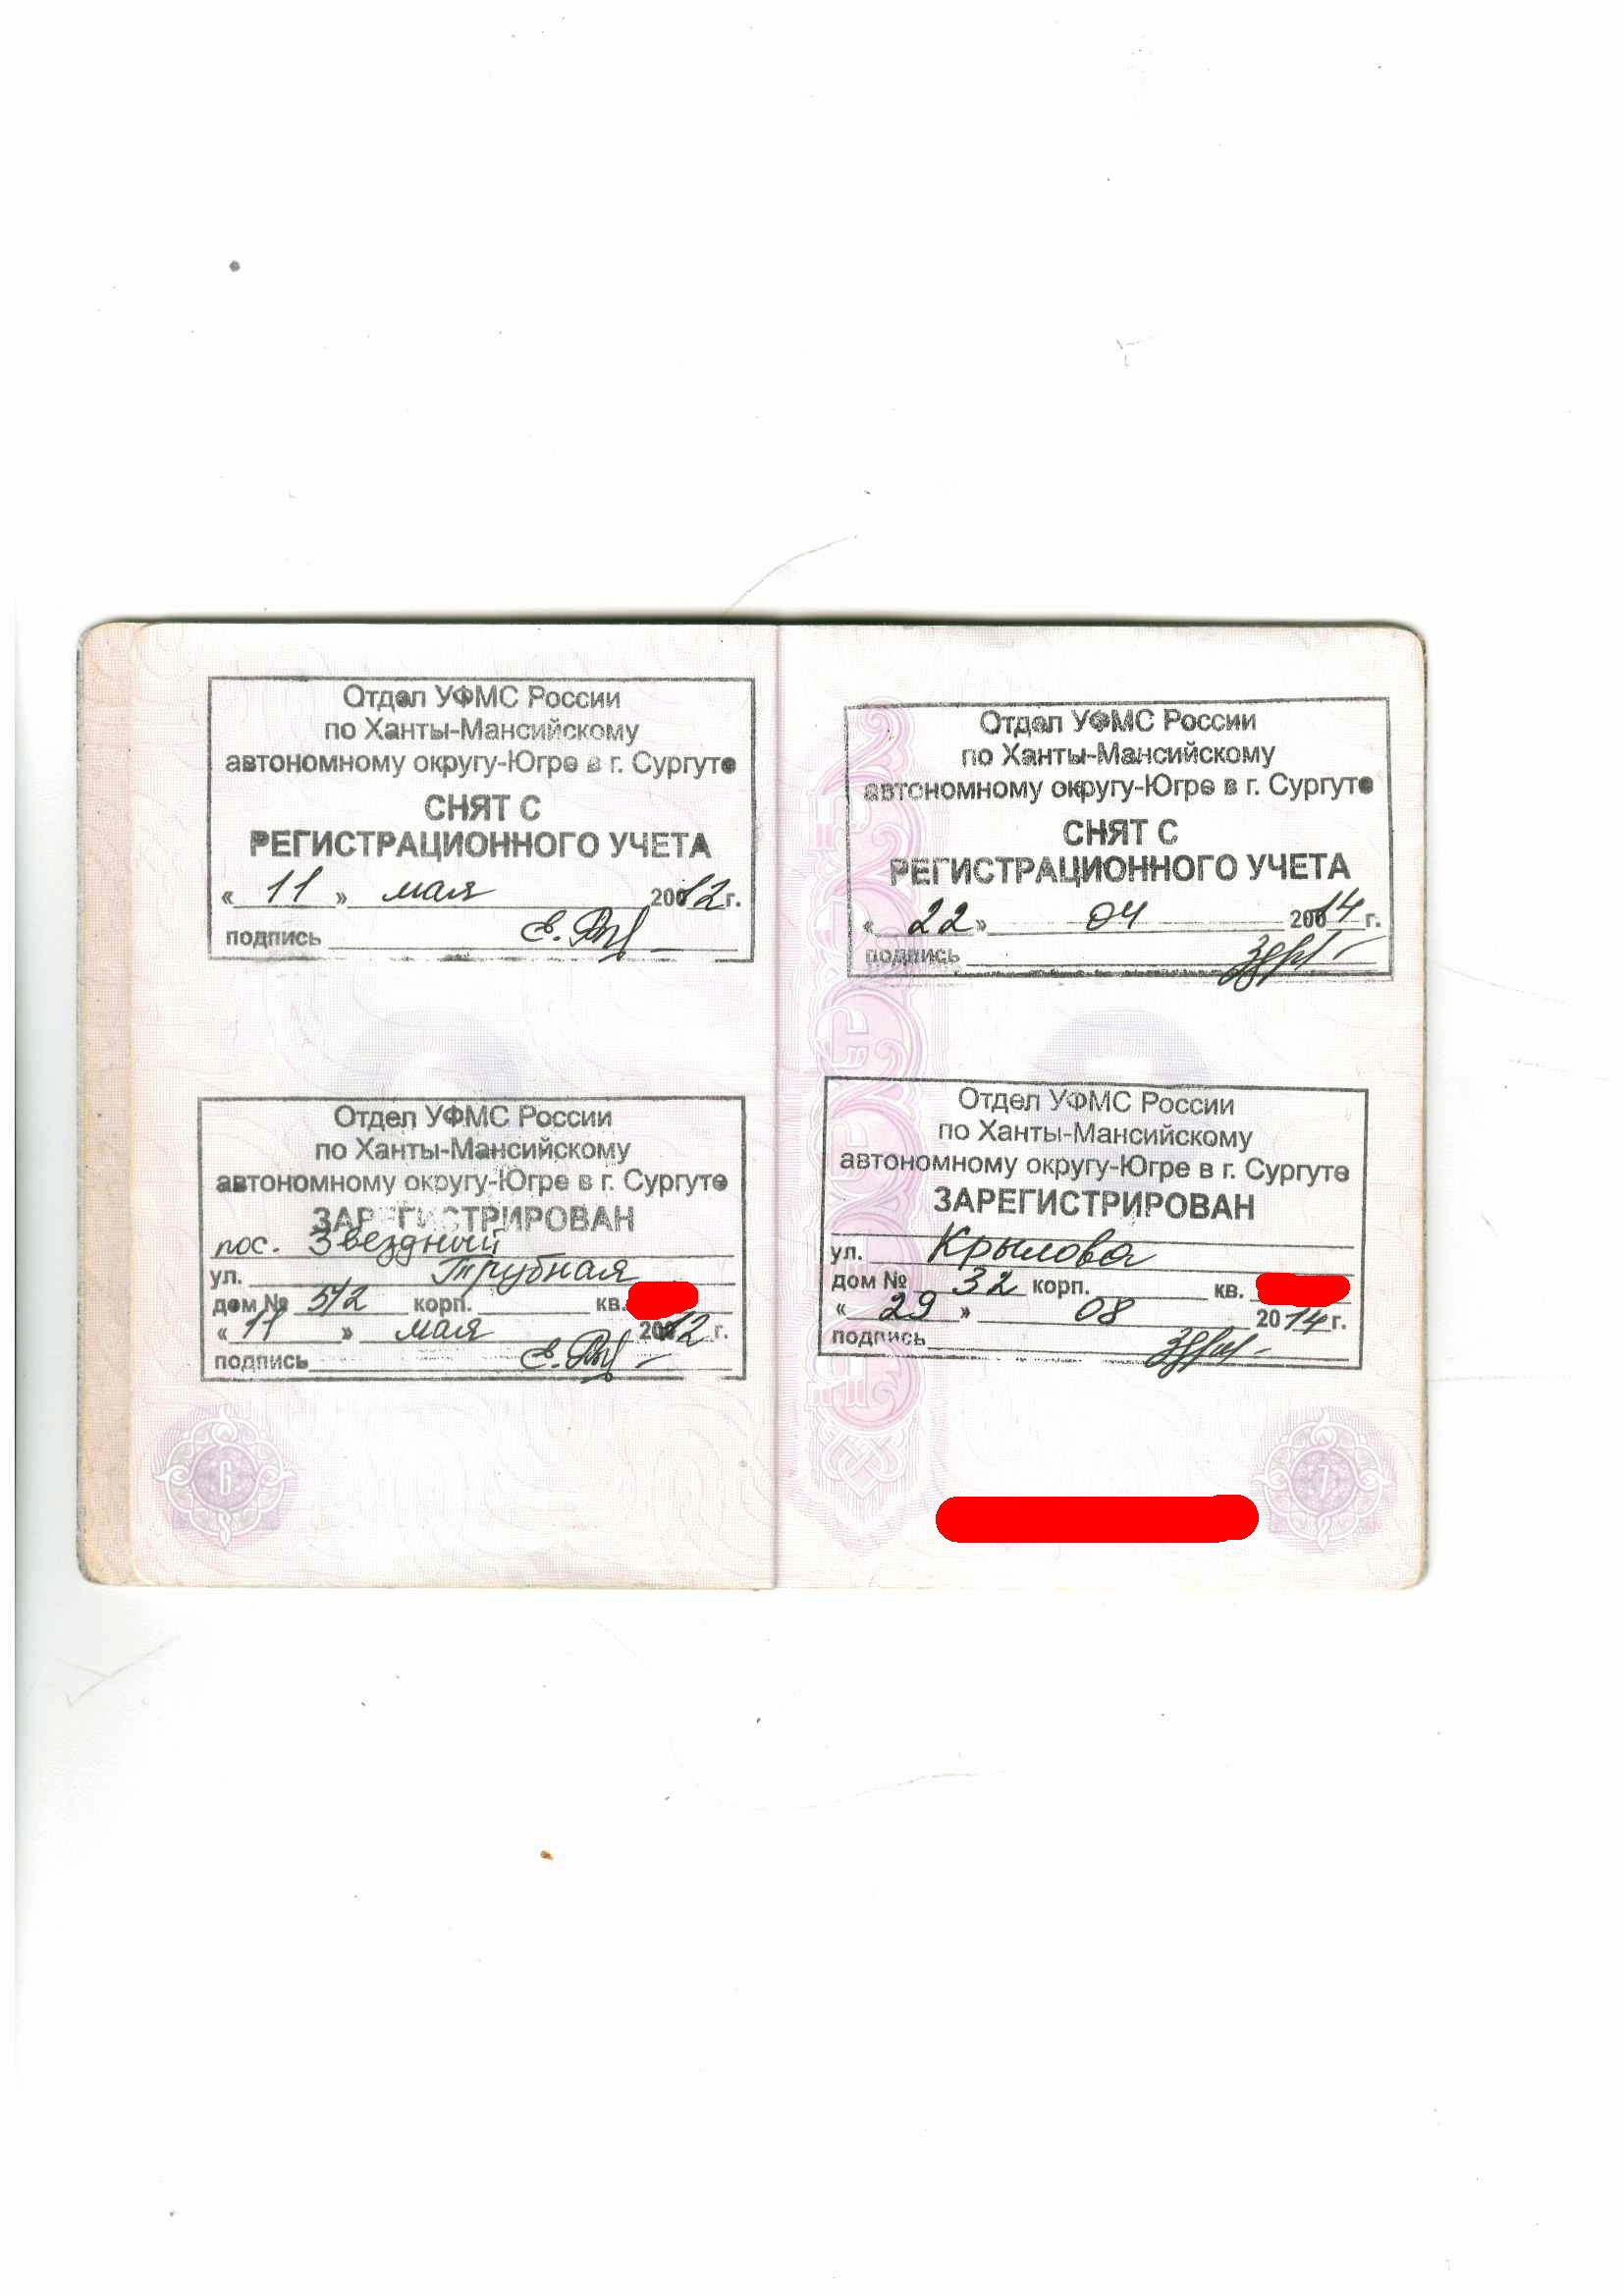 Отдел УФМС России
по Ханты-Мансийскому
автономному округу-Югре в г. Сургуте
СНЯТ С
РЕГИСТРАЦИОННОГО УЧЕТА
« 11 » мая 20012г.
подпись
Отдел УФМС России
по Ханты-Мансийскому
автономному округу-Югре в г. Сургуте
ЗАРЕГИСТРИРОВАН
пос. Звездный
ул. Трубная
дом № 5/2 корп. кв.
« 11 » мая 20012 г.
подпись
6
Отдел УФМС России
по Ханты-Мансийскому
автономному округу-Югре в г. Сургуте
СНЯТ С
РЕГИСТРАЦИОННОГО УЧЕТА
« 22 » 04 20014 г.
подпись
Отдел УФМС России
по Ханты-Мансийскому
автономному округу-Югре в г. Сургуте
ЗАРЕГИСТРИРОВАН
ул. Крылова
дом № 32 корп. кв.
« 29 » 08 2014 г.
подпись
7